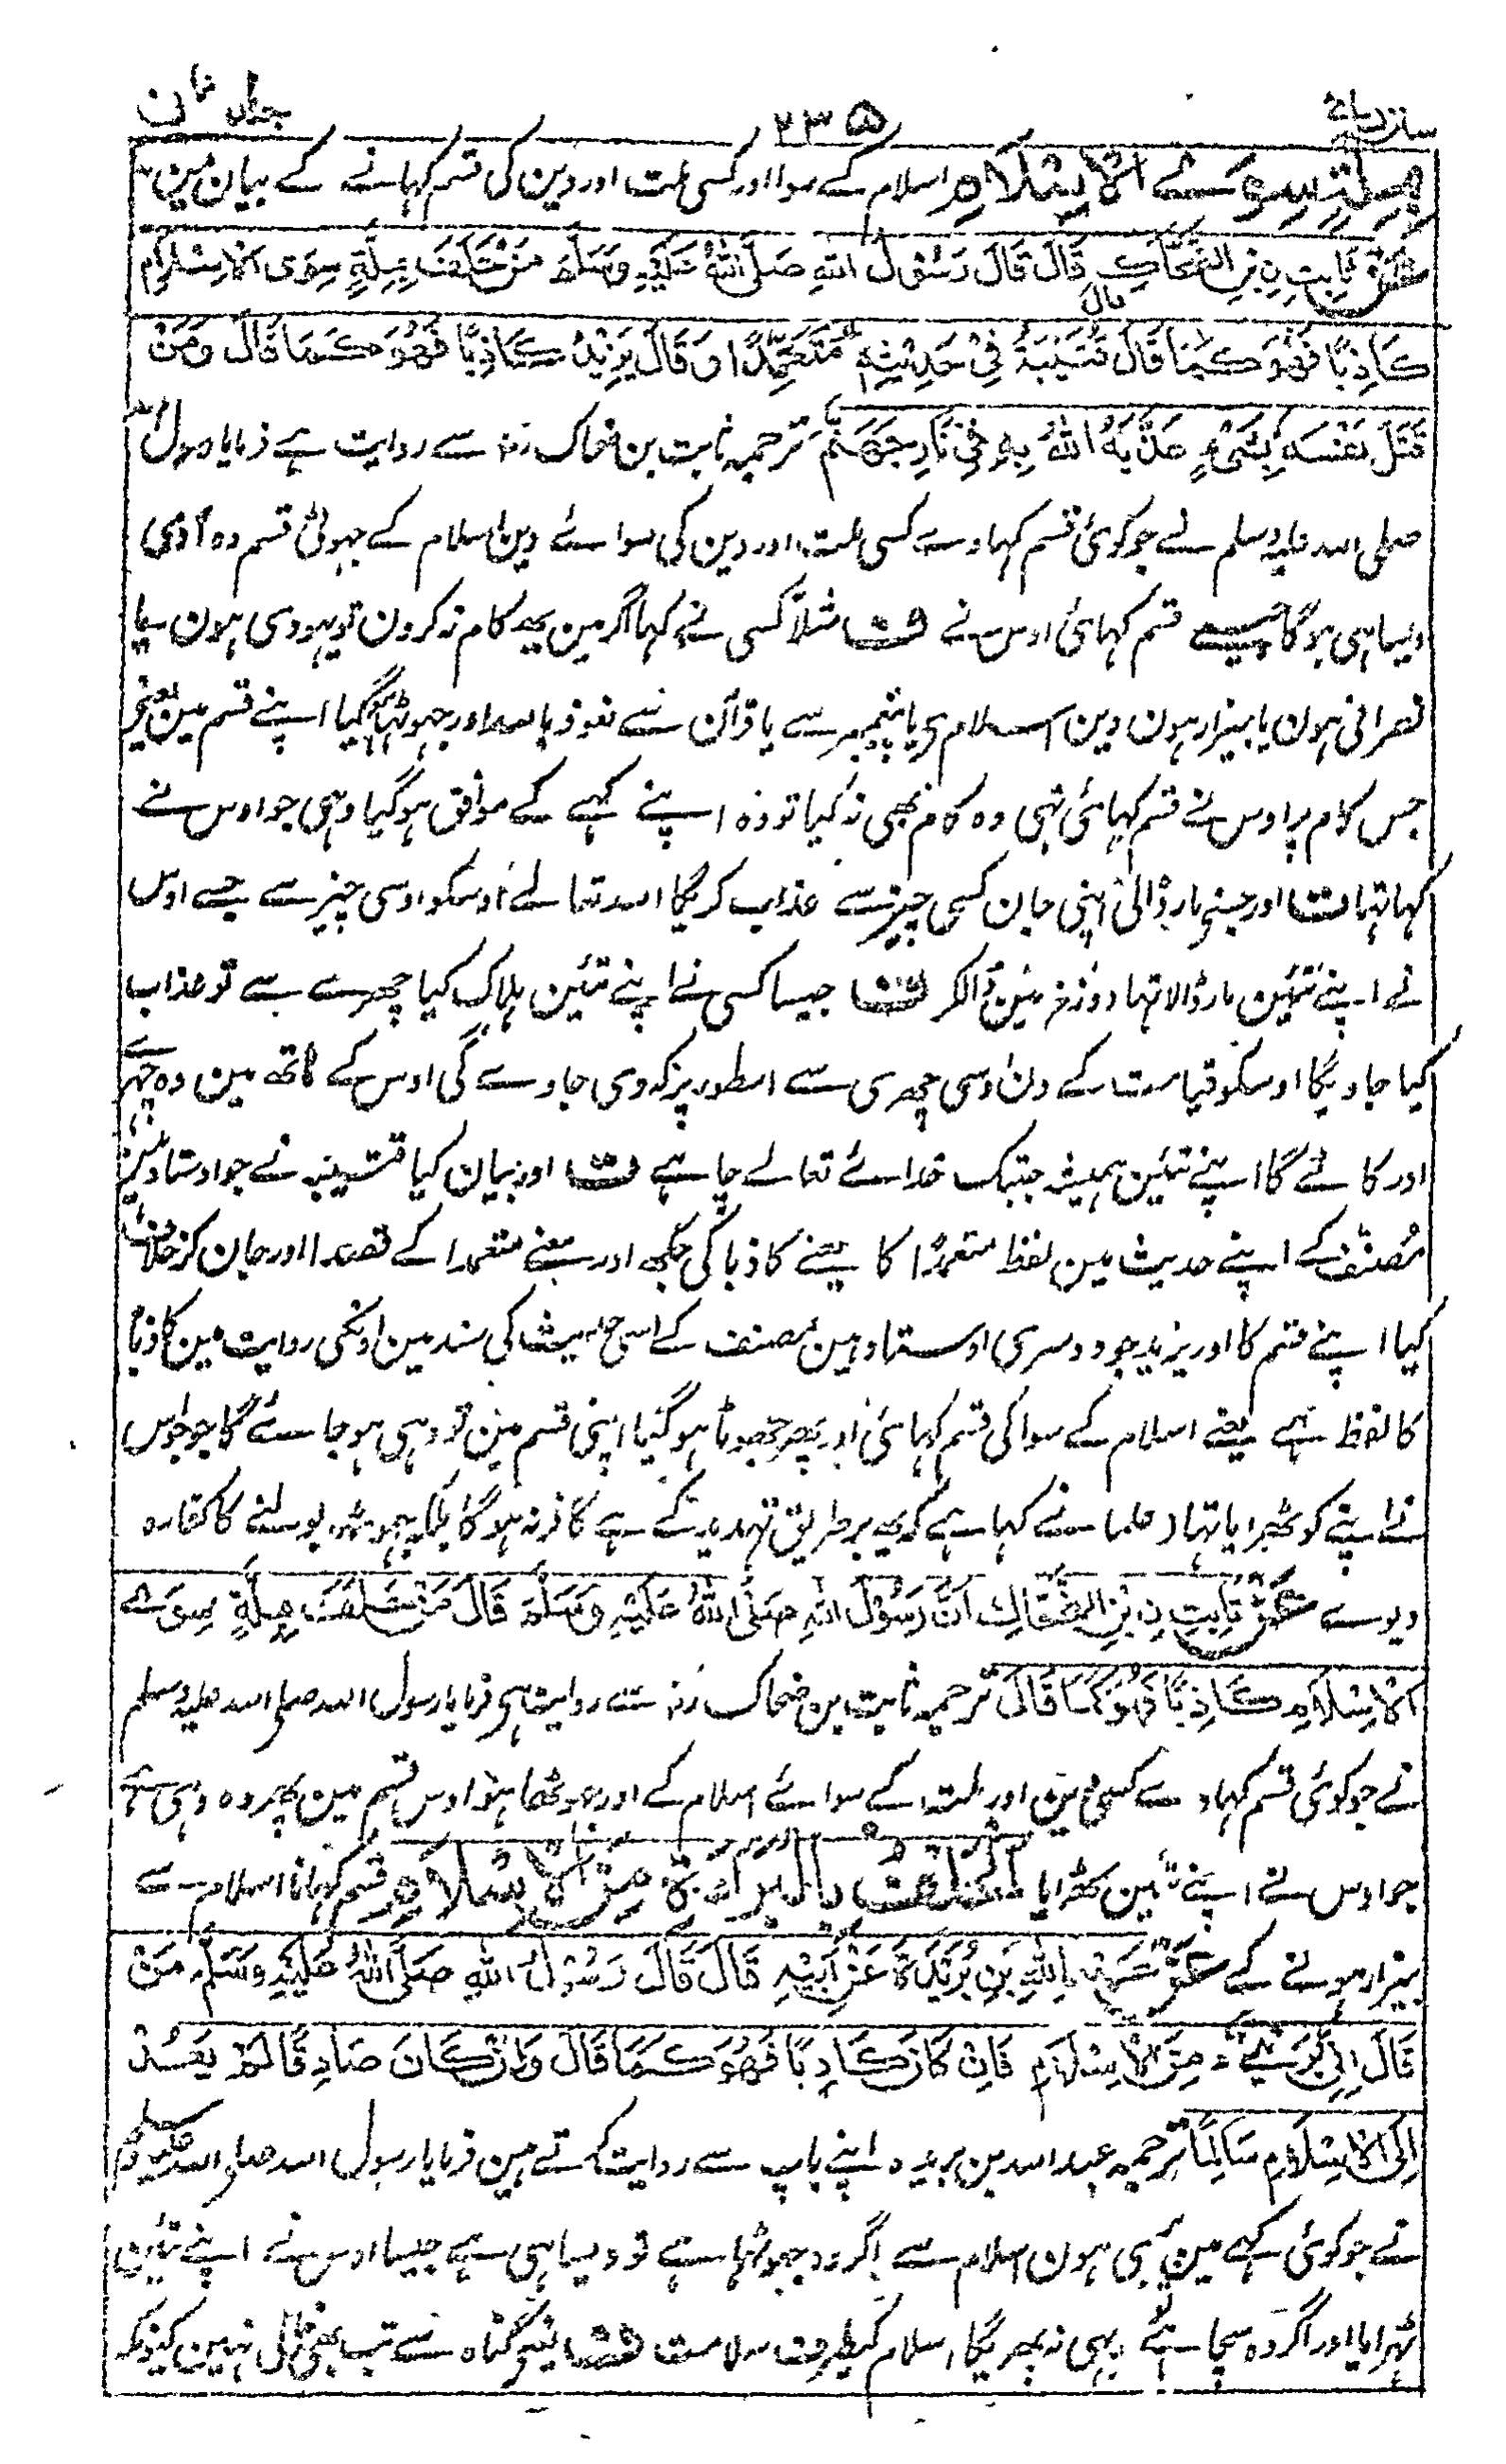 جلد ثانی ۲۳۵ سنن نسائی
بِمِلَّةٍ سِوَى الْاِسْلَامِ اسلام کے سوا اور کسی ملت اور دین کی قسم کہانے کے بیان مین
عَنْ ثَابِتِ بْنِ الضَّحَّاكِ قَالَ قَالَ رَسُوْلُ اللهِ صَلَّى اللهُ عَلَيْهِ وَسَلَّمَ مَنْ حَلَفَ بِمِلَّةٍ سِوَى الْاِسْلَامِ
كَاذِبًا فَهُوَ كَمَا قَالَ قَالَ قُتَيْبَةُ فِيْ حَدِيْثِهٖ مُتَعَمِّدًا وَقَالَ يَزِيْدُ كَاذِبًا فَهُوَ كَمَا قَالَ وَمَنْ
قَتَلَ نَفْسَهٗ بِشَيْءٍ عَذَّبَهُ اللهُ بِهٖ فِيْ نَارِ جَهَنَّمَ ترجمہ ثابت بن ضحاک رضہ سے روایت ہے فرمایا رسول اللہ
صلی اللہ علیہ وسلم نے جو کوئی قسم کہاوے کسی ملت اور دین کی سوائے دین اسلام کے جہوٹی قسم وہ آدمی
ویسا ہی ہوگا جیسے قسم کہائی اوس نے ف مثلاً کسی نے کہا اگر مین یہہ کام نہ کرون تو یہودی ہون یا
نصرانی ہون یا بیزار ہون دین اسلام سے یا پیغمبر سے یا قرآن سے نعوذ باللہ اور جہوٹا ہوگیا اپنے قسم مین یعنی
جس کام پر اوس نے قسم کہائی تہی وہ کام بھی نہ کیا تو وہ اپنے کہے کے موافق ہوگیا وہی جو اوس نے
کہا تہا ف اور جسنے مار ڈالی اپنی جان کسی چیز سے عذاب کریگا اللہ تعالے اوسکو اوسی چیز سے جسے اوس
نے اپنے تئین مار ڈالا تہا دوزخ مین ڈالکر ف جیسا کسی نے اپنے تئین ہلاک کیا چھرے سے تو عذاب
کیا جاویگا اوسکو قیامت کے دن اوسی چھری سے اسطور پر کہ دی جاوے گی اوس کے ہاتھ مین وہ چہری
اور کاٹے گا اپنے تئین ہمیشہ جبتک خدائے تعالے چاہے ف اور بیان کیا قتیبہ نے جو اوستاد ہین
مصنّف کے اپنے حدیث مین لفظ متعمدًا کا یعنے کاذبا کی جگہہ اور معنے متعمدا کے قصدا اور جان کر خلاف
کیا اپنے قسم کا اور یزید جو دوسری اوستاد ہین مصنف کے اسی حدیث کی سند مین اونکی روایت مین کاذبًا
کا لفظ ہے یعنے اسلام کے سوا کی قسم کہائی اور پھر جھوٹا ہوگیا اپنی قسم مین تو وہی ہو جائے گا جو اوس
نے اپنے کو ٹھیرایا تہا علما نے کہا ہے کہ یہہ بر طریق تہدید کے ہے کافر نہ ہوگا بلکہ جہوٹھہ بولنے کا کفارہ
دیوے عَنْ ثَابِتِ بْنِ الضَّحَّاكِ اَنَّ رَسُوْلَ اللهِ صَلَّى اللهُ عَلَيْهِ وَسَلَّمَ قَالَ مَنْ حَلَفَ بِمِلَّةٍ سِوَى
الْاِسْلَامِ كَاذِبًا فَهُوَ كَمَا قَالَ ترجمہ ثابت بن ضحاک رضہ سے روایت ہی فرمایا رسول اللہ صلی اللہ علیہ وسلم
نے جو کوئی قسم کہاوے کسی دین اور ملت کے سوائے اسلام کے اور جھوٹھا ہو اوس قسم مین پھر وہ وہی ہے
جو اوس نے اپنے تئین ٹھرایا اَلْحَلْفُ بِالْبَرَاءَةِ مِنَ الْاِسْلَامِ قسم کہانا اسلام سے
بیزار ہونے کے عَنْ عَبْدِ اللهِ بْنِ بُرَيْدَةَ عَنْ اَبِيْهِ قَالَ قَالَ رَسُوْلُ اللهِ صَلَّى اللهُ عَلَيْهِ وَسَلَّمَ مَنْ
قَالَ اِنِّيْ بَرِيْءٌ مِنَ الْاِسْلَامِ فَاِنْ كَانَ كَاذِبًا فَهُوَ كَمَا قَالَ وَاِنْ كَانَ صَادِقًا لَمْ يَعُدْ
اِلَى الْاِسْلَامِ سَالِمًا ترجمہ عبد اللہ بن بریدہ اپنے باپ سے روایت کرتے ہین فرمایا رسول اللہ صلی اللہ علیہ وسلم
نے جو کوئی کہے مین بری ہون اسلام سے اگر وہ جھوٹہا ہے تو ویسا ہی ہے جیسا اوس نے اپنے تئین
ٹہرایا اور اگر وہ سچا ہے تو بہی نہ پھریگا اسلام کیطرف سلامت ف یعنی گناہ سے تب بھی خالی نہین کیونکہ